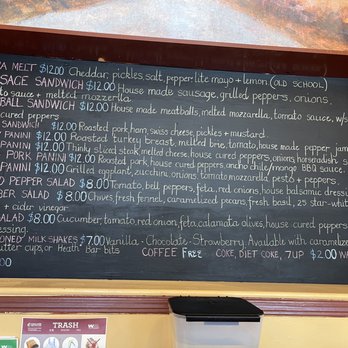 MELT $12.00 Cheddar, pickles, salt, pepper lite mayo + lemon (OLD SCHOOL)
SAGE SANDWICH $12.00 House made sausage, grilled peppers, onions,
to sauce + melted mozzarella
BALL SANDWICH $12.00 House made meatballs, melted mozzarella, tomato sauce, w/s
cured peppers
SANDWICH $12.00 Roasted pork ham, swiss cheese, pickles + mustard
PANINI $12.00 Roasted turkey breast, melted brie, tomato, house made pepper jam
PANINI $12.00 Thinly sliced steak, melted cheese, house cured peppers, onions, horseradish
PORK PANINI $12.00 Roasted pork, house cured peppers, ancho chile/mango BBQ sauce
PANINI $12.00 Grilled eggplant, zucchini, onions, tomato, mozzarella, pesto + peppers
D PEPPER SALAD $8.00 Tomato, bell peppers, feta, red onions, house balsamic dress
BER SALAD $8.00 Chives, fresh fennel, caramelized pecans, fresh basil, 25 star-whit
+ cider vinegar
SALAD $8.00 Cucumber, tomato, red onion, feta, calamata olives, house cured peppers
essing.
ONED MILK SHAKES $7.00 Vanilla - Chocolate - Strawberry. Available with caramelize
utter cups, or Heath Bar bits COFFEE FREE COKE, DIET COKE, 7UP $2.00 WA
.00
TRASH